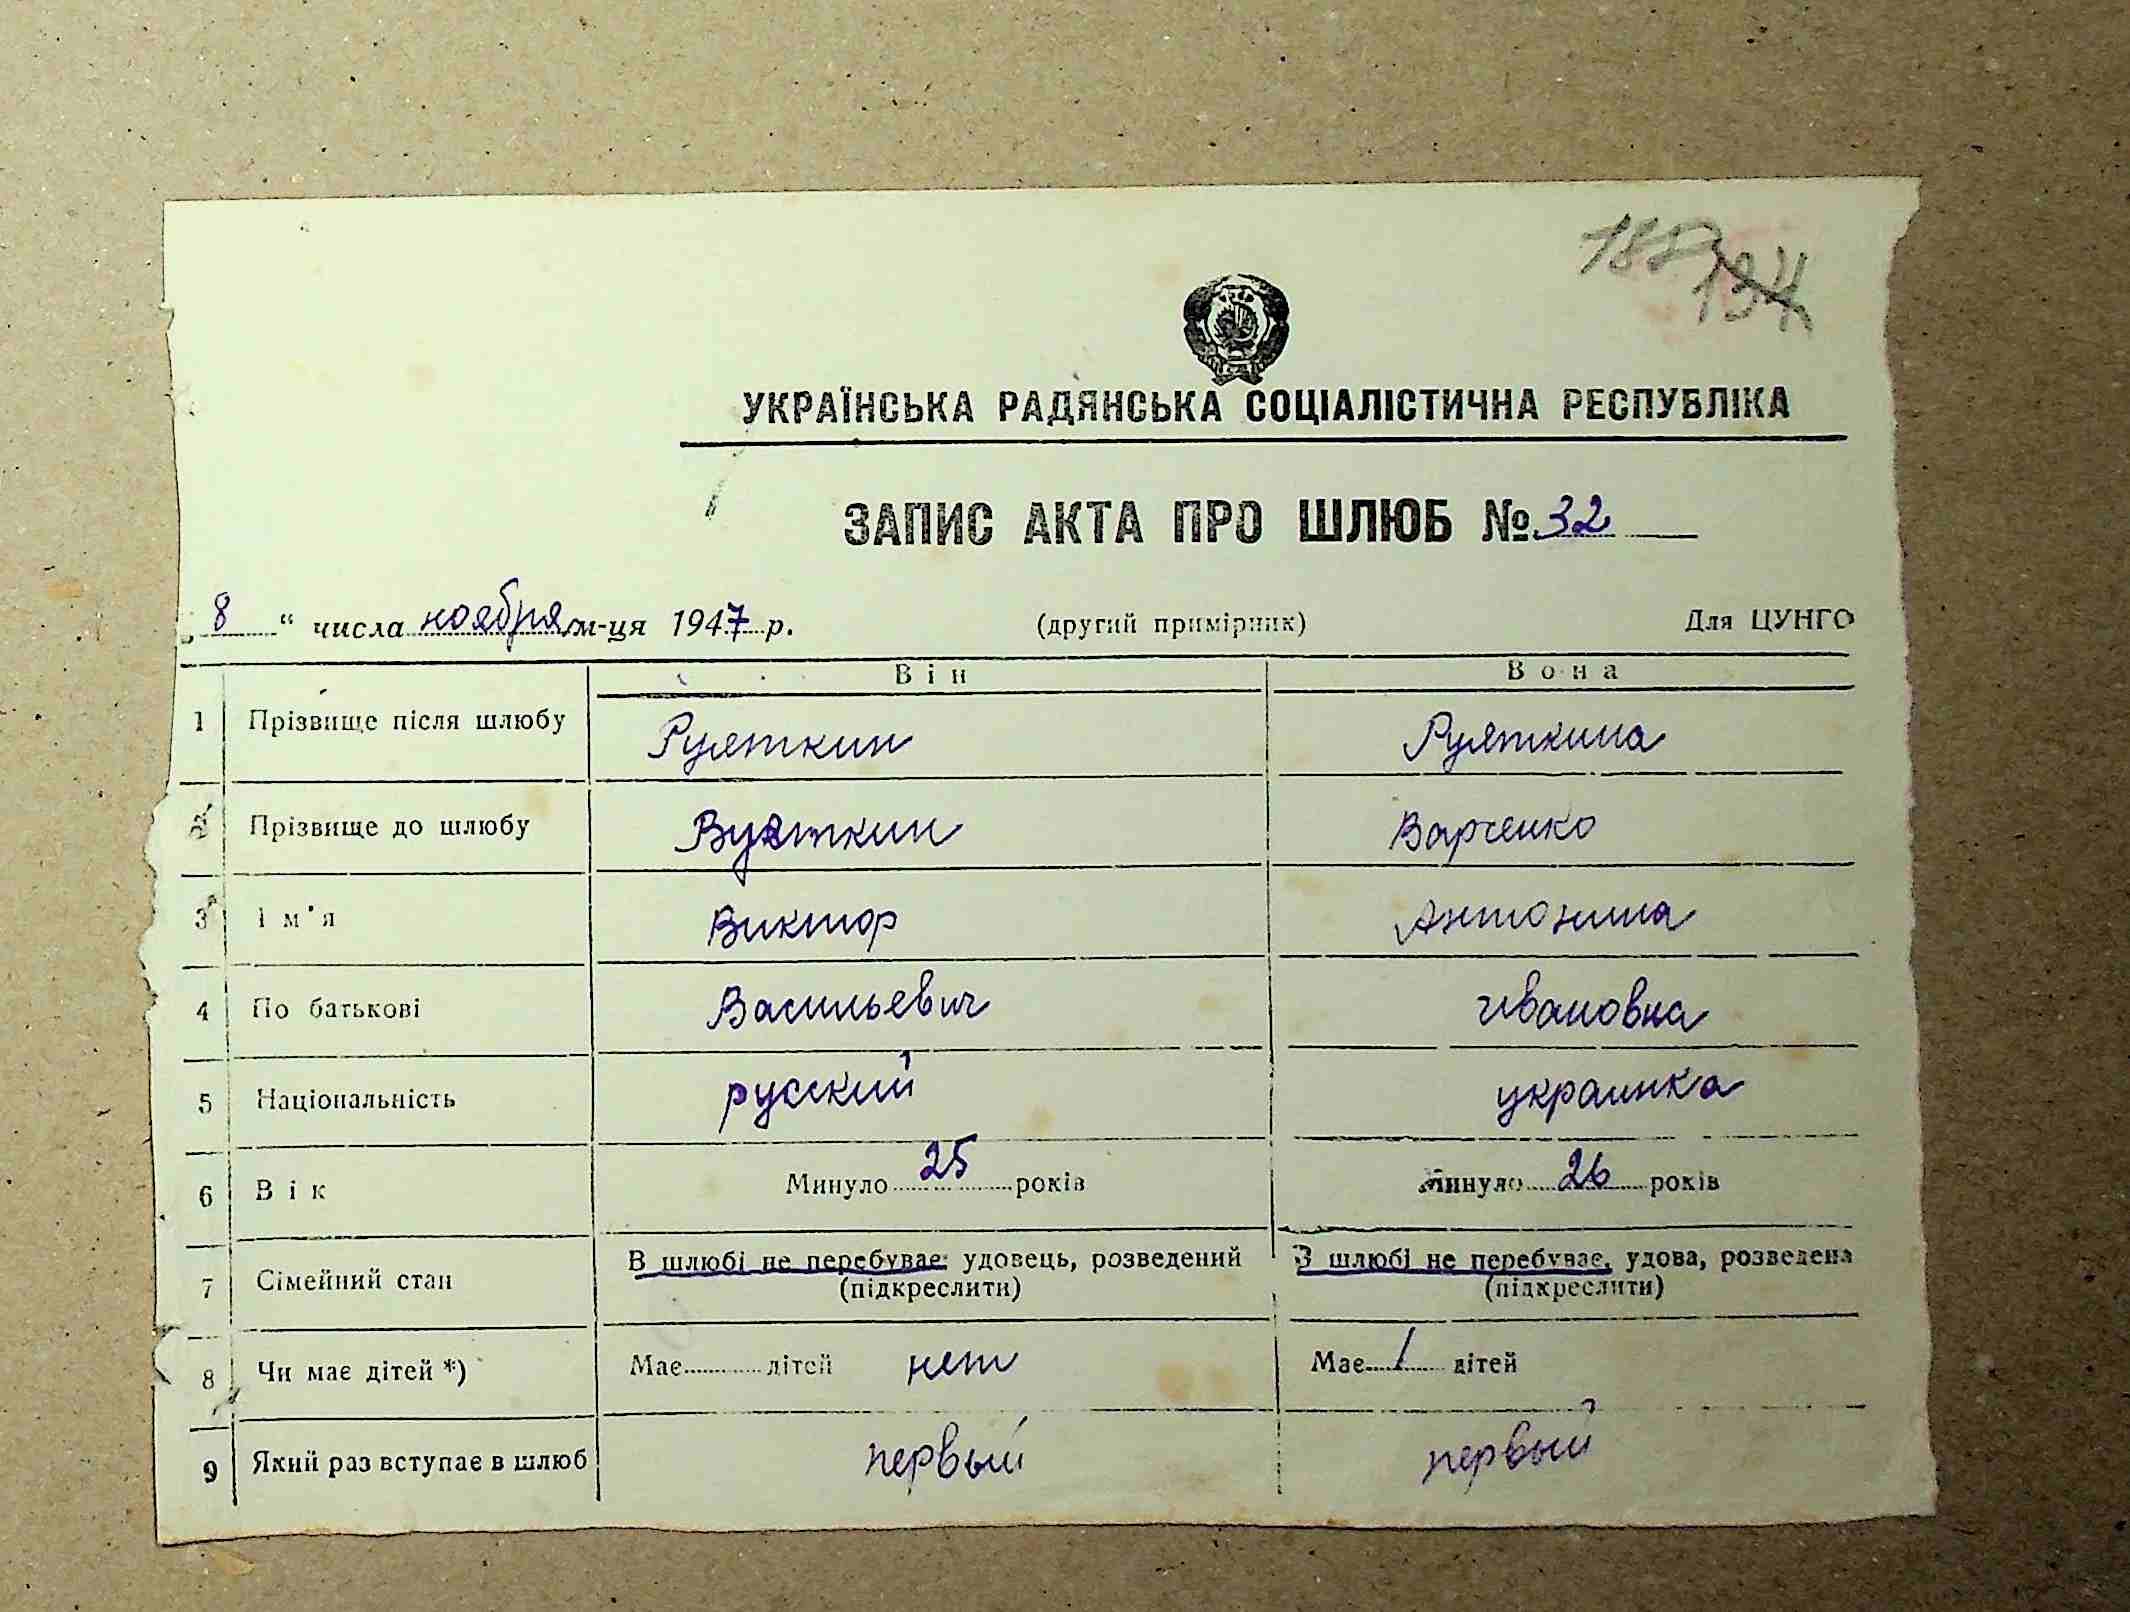 УКРАЇНСЬКА РАДЯНСЬКА СОЦІАЛІСТИЧНА РЕСПУБЛІКА
ЗАПИС АКТА ПРО ШЛЮБ № 32
„ 8 “ числа ноября м-ця 1947 р. (другий примірник) Для ЦУНГО
Він Вона
1 Прізвище після шлюбу Руяткин Руяткина
2 Прізвище до шлюбу Варченко
3 Ім'я Виктор Антонина
4 По батькові Васильевич Ивановна
5 Національність русский украинка
6 Вік Минуло 25 років Минуло 26 років
7 Сімейний стан В шлюбі не перебуває, удовець, розведений В шлюбі не перебуває, удова, розведена
(підкреслити) (підкреслити)
8 Чи має дітей *) Має дітей нет Має 1 дітей
9 Який раз вступає в шлюб первый первый